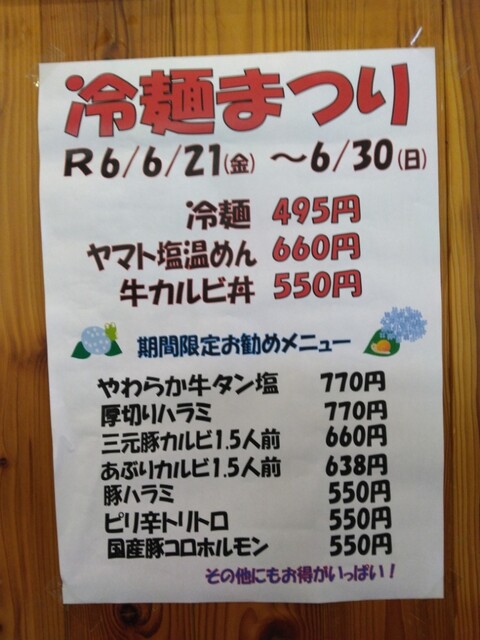 冷麺まつり
R6/6/21(金) ～6/30(日)
冷麺 495円
ヤマト塩温めん 660円
牛カルビ丼 550円
期間限定お勧めメニュー
やわらか牛タン塩 770円
厚切りハラミ 770円
三元豚カルビ1.5人前 660円
あぶりカルビ1.5人前 638円
豚ハラミ 550円
ピリ辛トリトロ 550円
国産豚コロホルモン 550円
その他にもお得がいっぱい！